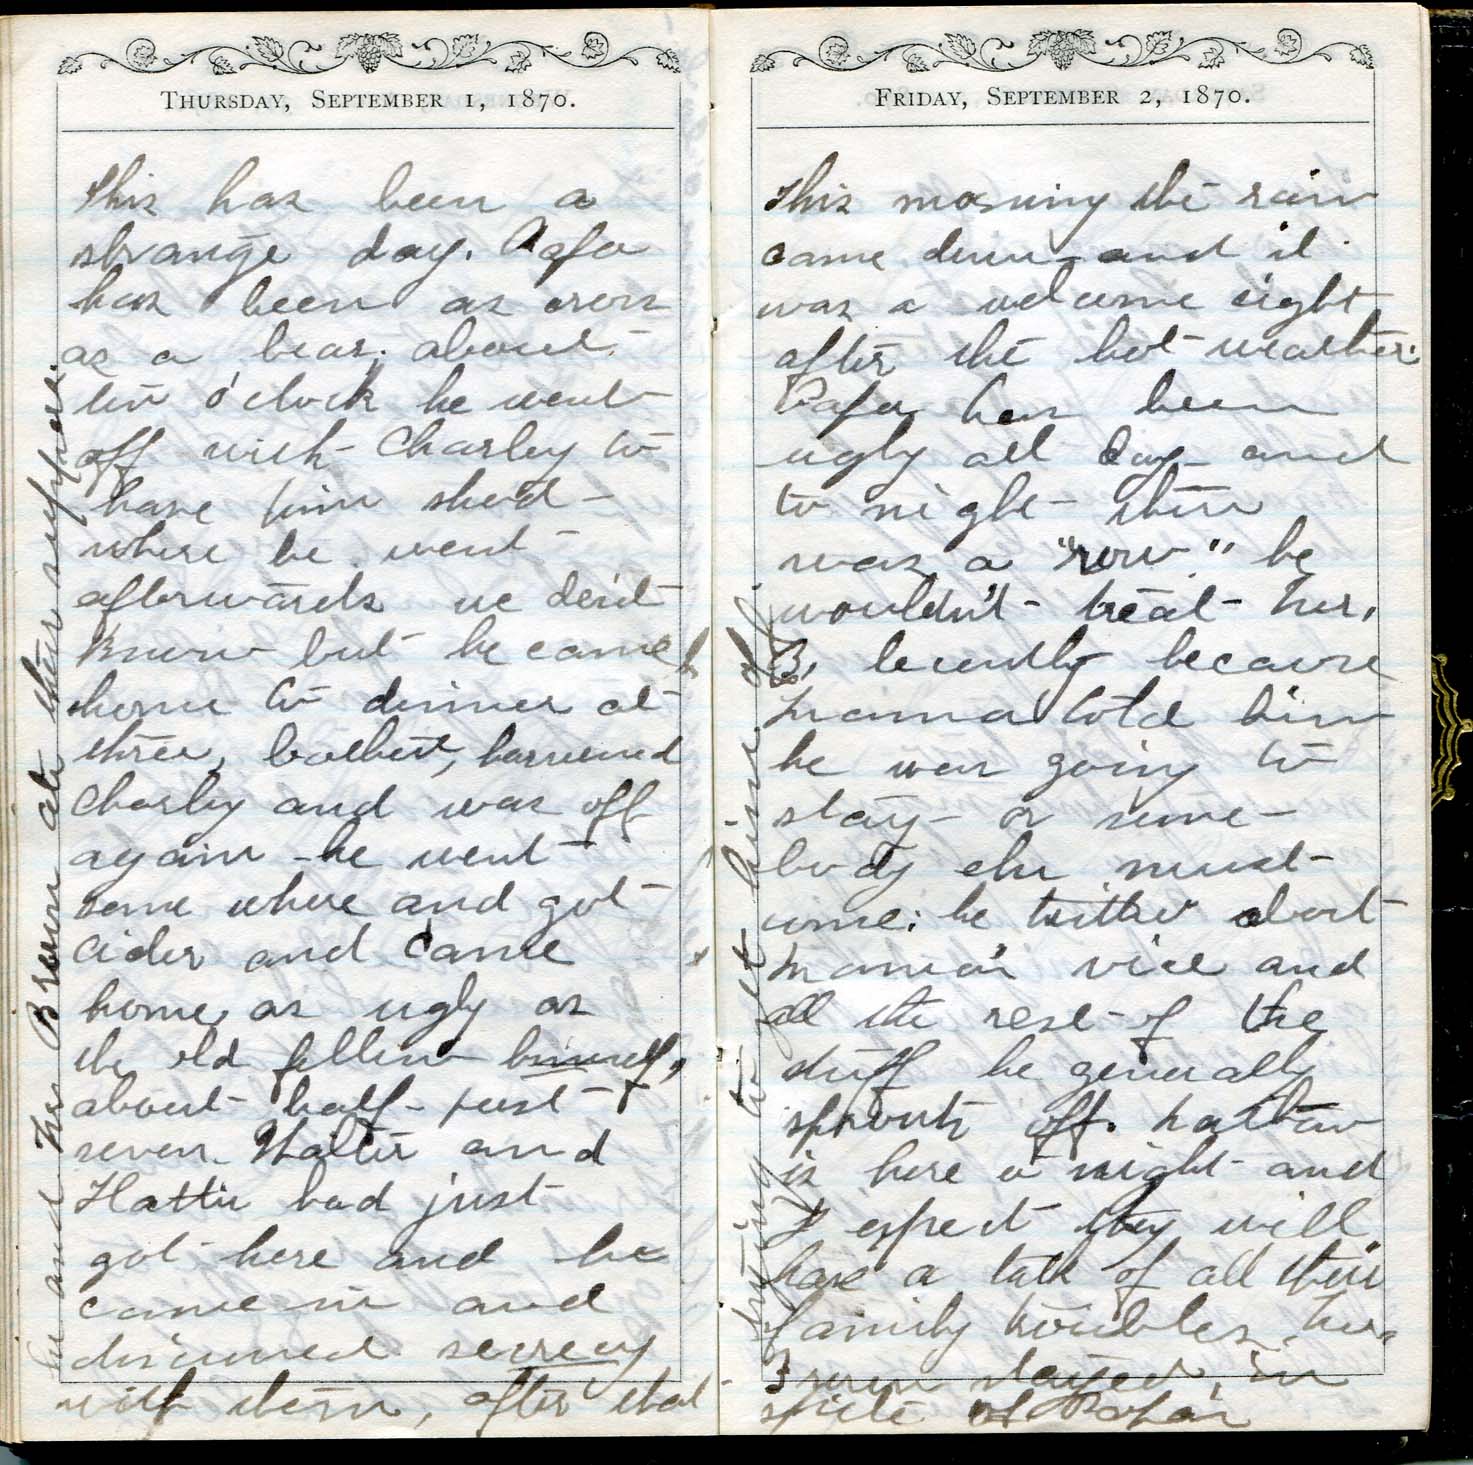 THURSDAY, SEPTEMBER 1, 1870.
This has been a
strange day. Papa
has been as cross
as a bear; about
ten o'clock he went
off with Charley to
have him shod –
where he went
afterwards we don't
know but he came
home to dinner at
three, bathed, harnessed
Charley and was off
again – he went
some where and got
cider and came
home as ugly as
the old fellow himself,
about half past
seven. Walter and
Hattie had just
got here and he
came in and
discussed secrecy
with them, after that
he and Mr Brown ate their suppers.
FRIDAY, SEPTEMBER 2, 1870.
This morning the rain
came down and it
was a welcome sight
after the hot weather.
Papa has been
ugly all day and
to night there
was a "row" he
wouldn't treat Mr.
B. decently because
Mama told him
he was going to
stay or some-
body else must
come: he about
Mama's vice and
all the rest of the
stuff he generally
spouts off. Nathan
is here to night and
I expect they will
have a talk of all their
family troubles. Mr.
Brown stayed, in
spite of Papa's
trying to get him off.